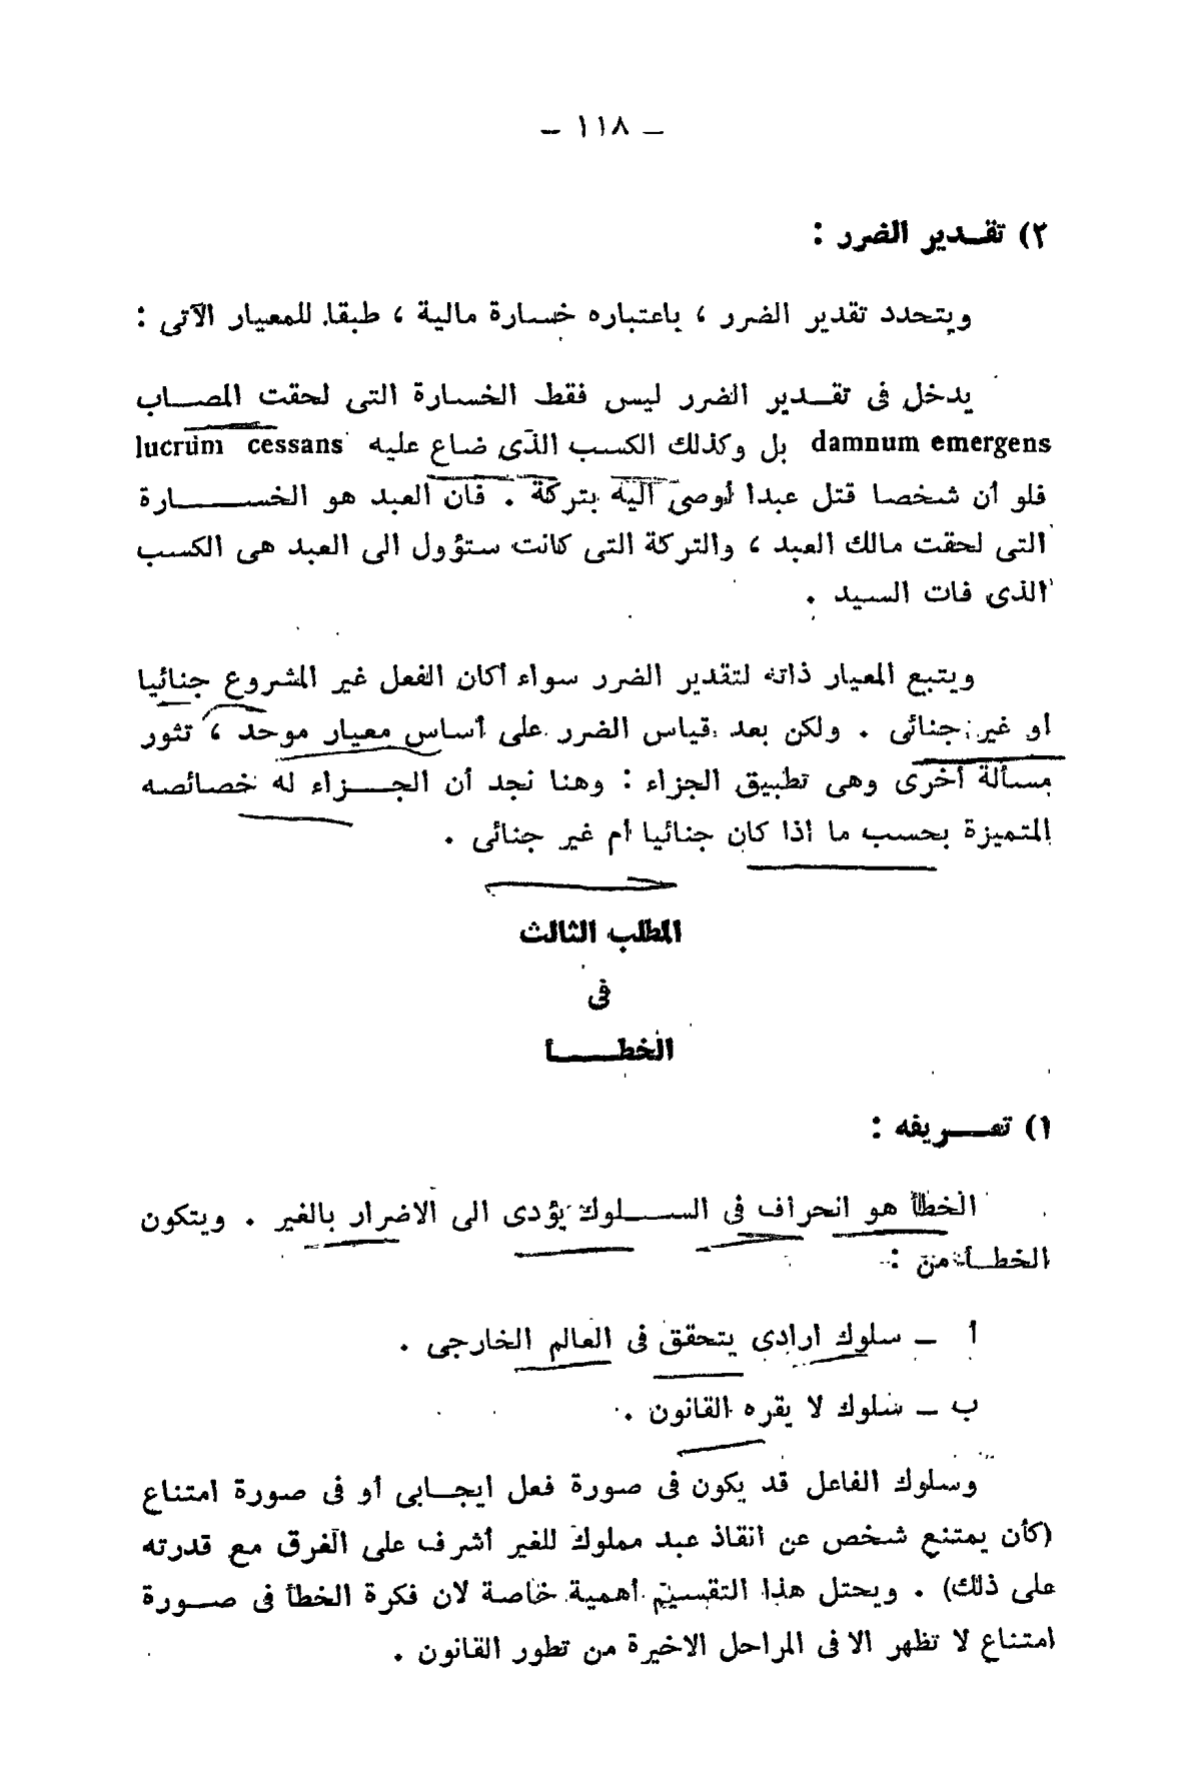 – ١١٨ –
٢) تقـدير الضرر :
ويتحدد تقدير الضرر ، باعتباره خسارة مالية ، طبقا للمعيار الآتى :
يدخل فى تقـدير الضرر ليس فقط الخسارة التى لحقت المصـاب
damnum emergens بل وكذلك الكسب الذى ضاع عليه lucrum cessans
فلو أن شخصا قتل عبدا أوصى اليه بتركة . فان العبد هو الخسـارة
التى لحقت مالك العبد ، والتركة التى كانت ستؤول الى العبد هى الكسب
الذى فات السيد .
ويتبع المعيار ذاته لتقدير الضرر سواء أكان الفعل غير المشروع جنائيا
أو غير جنائى . ولكن بعد قياس الضرر على أساس معيار موحد ، تثور
مسألة أخرى وهى تطبيق الجزاء : وهنا نجد أن الجـزاء له خصائصه
المتميزة بحسب ما اذا كان جنائيا أم غير جنائى .
المطلب الثالث
فى
الخطـأ
١) تعـريفه :
الخطأ هو انحراف فى السـلوك يؤدى الى الاضرار بالغير . ويتكون
الخطـأ من :
أ – سلوك ارادى يتحقق فى العالم الخارجى .
ب – سلوك لا يقره القانون .
وسلوك الفاعل قد يكون فى صورة فعل ايجـابى أو فى صورة امتناع
(كأن يمتنع شخص عن انقاذ عبد مملوك للغير أشرف على الغرق مع قدرته
على ذلك) . ويحتل هذا التقسيم أهمية خاصة لان فكرة الخطأ فى صـورة
امتناع لا تظهر الا فى المراحل الاخيرة من تطور القانون .